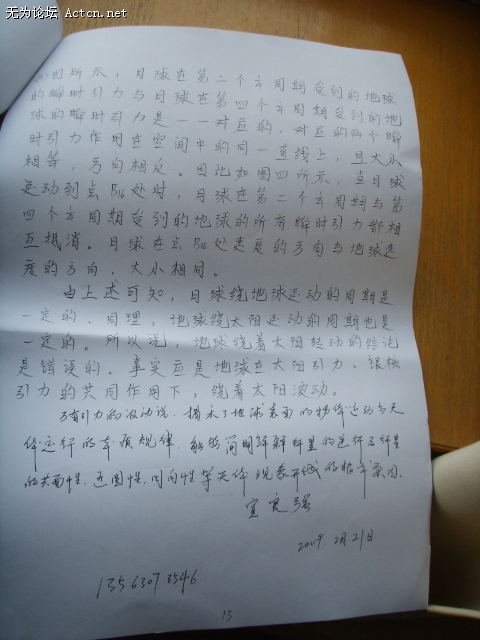 无为论坛 Actcn.net
图所示，月球在第二个¼周期受到的地球
的瞬时引力与月球在第四个¼周期受到的地
球的瞬时引力是一一对应的，对应的两个瞬
时引力作用在空间中的同一直线上，且大小
相等，方向相反。因此如图四所示，当月球
运动到点B16处时，月球在第二个¼周期与第
四个¼周期受到的地球的所有瞬时引力都相
互抵消。月球在点B16处速度的方向与地球速
度的方向，大小相同。
由上述可知，月球绕地球运动的周期是
一定的。同理，地球绕太阳运动的周期也是
一定的。所以说，地球绕着太阳转动的结论
是错误的。事实应是地球在太阳引力、银核
引力的共同作用下，绕着太阳波动。
万有引力的波动说，揭示了地球表面的物体运动与天
体运行的本质规律，能够简明解释行星的运行及行星
的共面性、近圆性、同向性等天体现象形成的根本原因。
宣良强
2009.2月21日
13